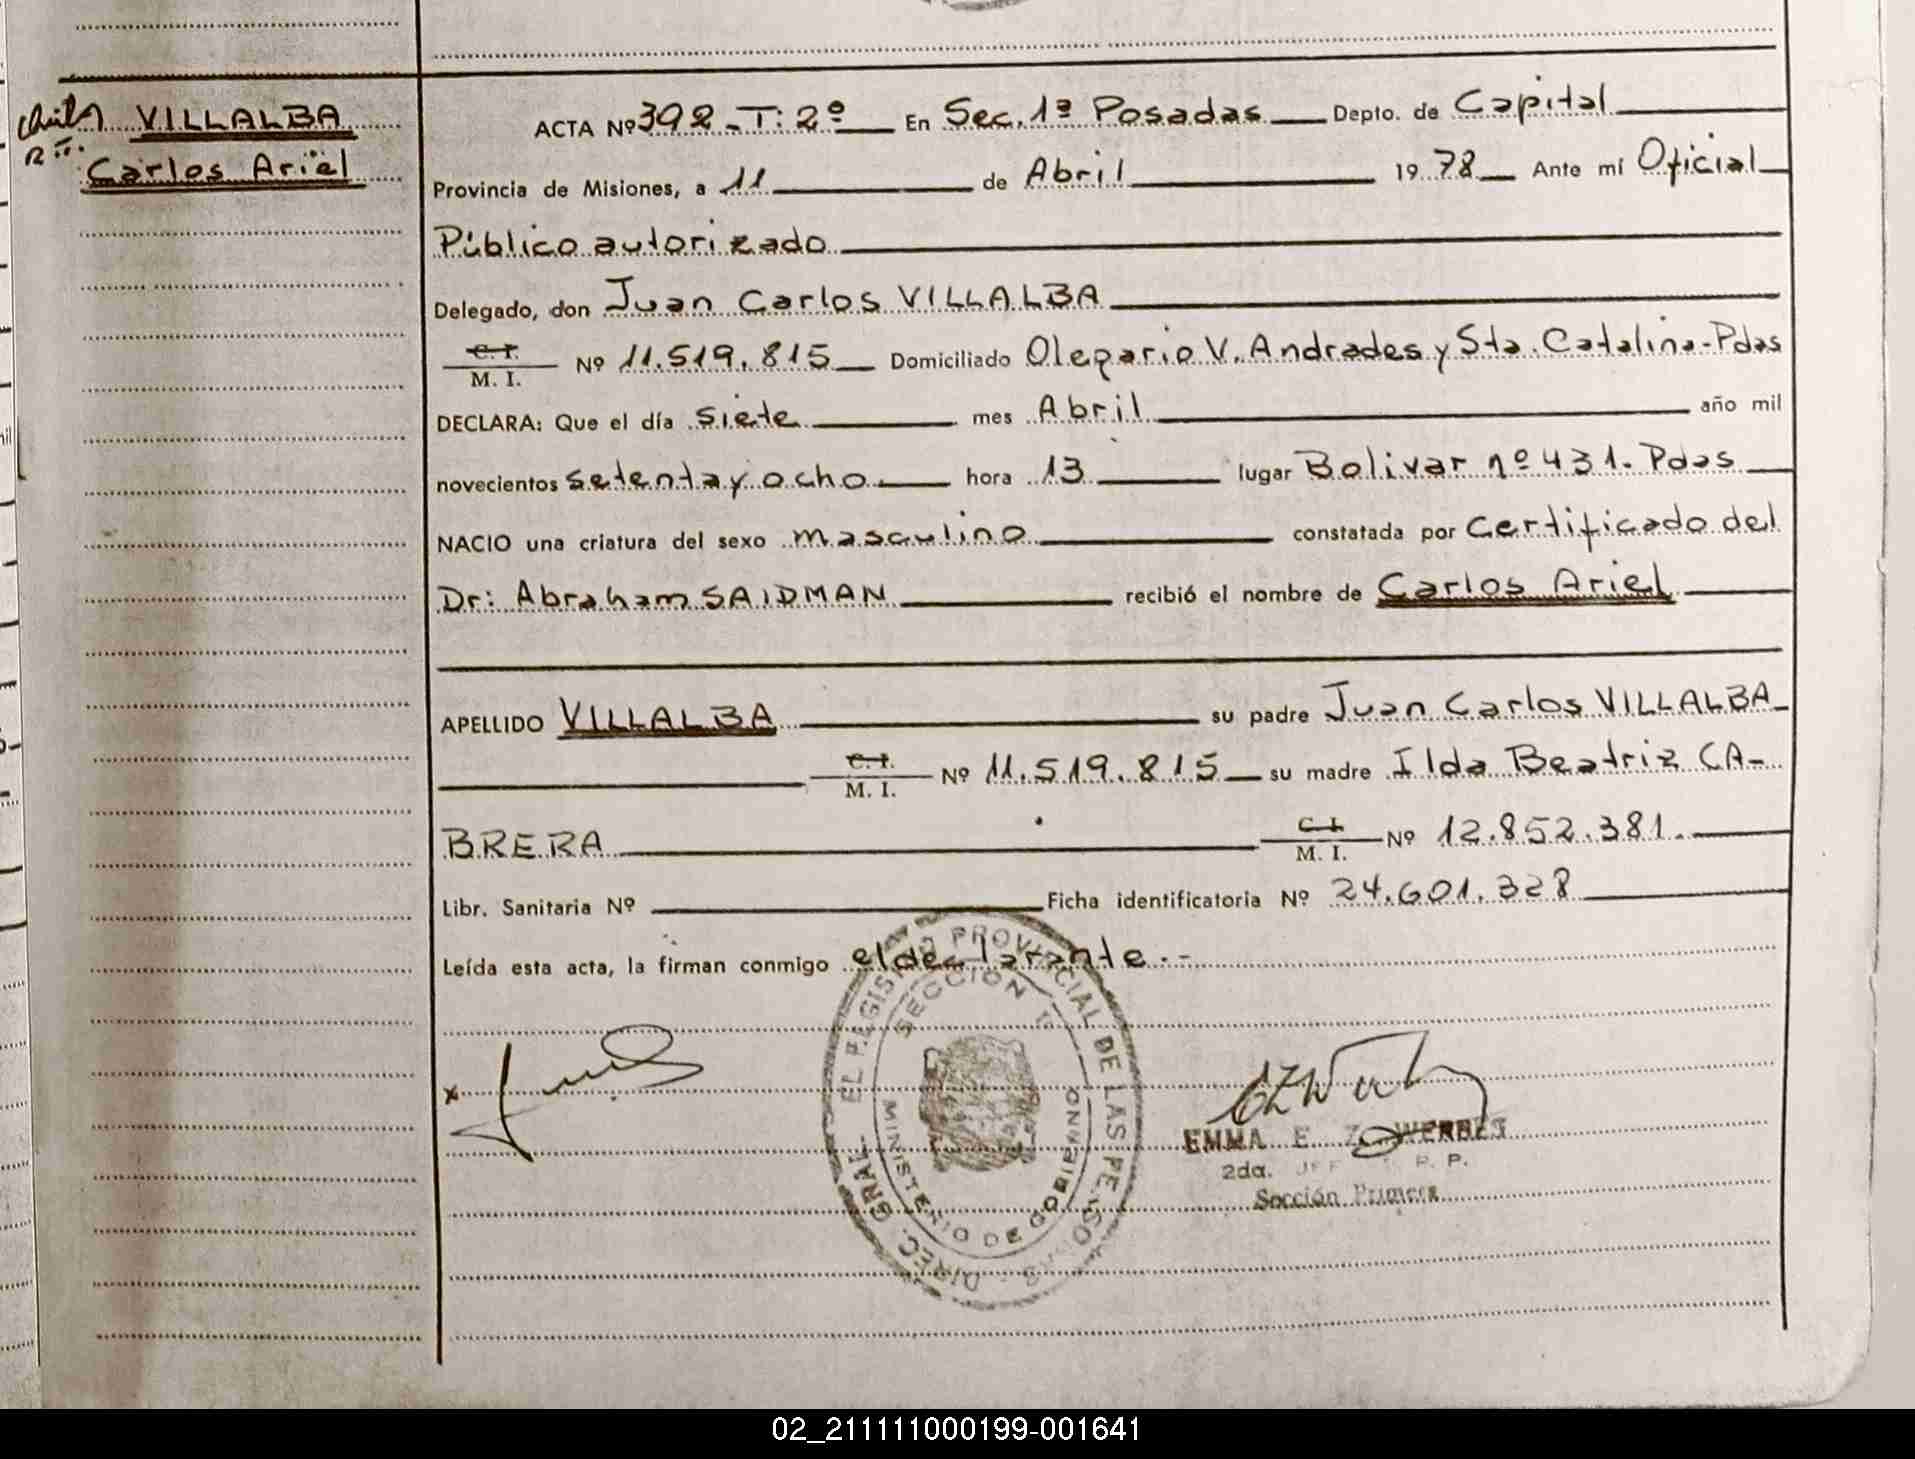 VILLALBA
Carlos Ariel
ACTA Nº 392 - T: 2º En Sec. 1ª Posadas Depto. de Capital
Provincia de Misiones, a 11 de Abril 1978 Ante mí Oficial
Público autorizado
Delegado, don Juan Carlos VILLALBA
C. I. M. I. Nº 11.519.815 Domiciliado Olegario V. Andrades y Sta. Catalina - Pdas
DECLARA: Que el día siete mes Abril año mil
novecientos setenta y ocho hora 13 lugar Bolivar nº 431. Pdas
NACIO una criatura del sexo masculino constatada por Certificado del
Dr: Abraham SAIDMAN recibió el nombre de Carlos Ariel
APELLIDO VILLALBA su padre Juan Carlos VILLALBA
C. I. M. I. Nº 11.519.815 su madre Ilda Beatriz CA-
BRERA C. I. M. I. Nº 12.852.381.
Libr. Sanitaria Nº Ficha identificatoria Nº 24.601.328
Leída esta acta, la firman conmigo el declarante.-
DIREC. GRAL. EL REGISTRO PROVINCIAL DE LAS PERSONAS
SECCION 1ª
MINISTERIO DE GOBIERNO
x
EMMA E. Z. WERBES
2da. JEF R. P. P.
Sección Primera
02_211111000199-001641